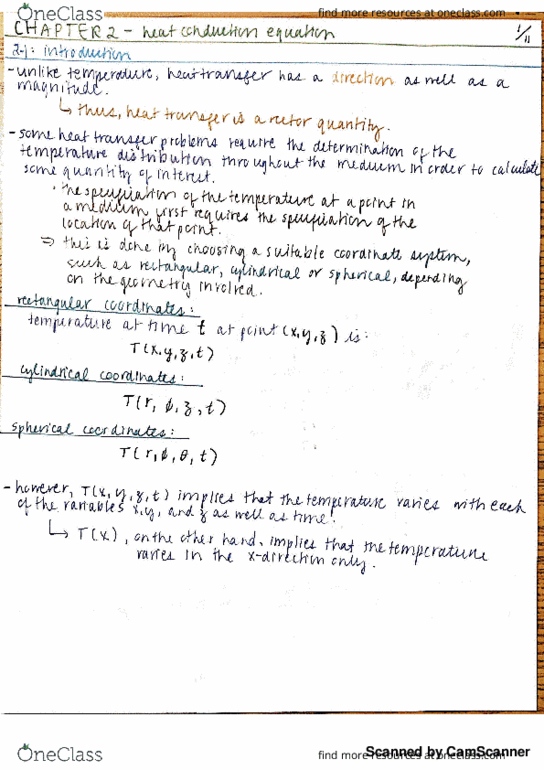 OneClass
find more resources at oneclass.com
CHAPTER 2 - heat conduction equation
1/11
2-1: introduction
- unlike temperature, heat transfer has a direction as well as a
magnitude.
↳ thus, heat transfer is a vector quantity.
- some heat transfer problems require the determination of the
temperature distribution throughout the medium in order to calculate
some quantity of interest.
• the specification of the temperature at a point in
a medium first requires the specification of the
location of that point.
⇒ this is done by choosing a suitable coordinate system,
such as rectangular, cylindrical or spherical, depending
on the geometry involved.
rectangular coordinates:
temperature at time t at point (x,y,z) is:
T(x,y,z,t)
cylindrical coordinates:
T(r, φ, z, t)
spherical coordinates:
T(r, φ, θ, t)
- however, T(x, y, z, t) implies that the temperature varies with each
of the variables x, y, and z as well as time!
↳ T(x), on the other hand, implies that the temperature
varies in the x-direction only.
OneClass
find more resources at oneclass.com
Scanned by CamScanner